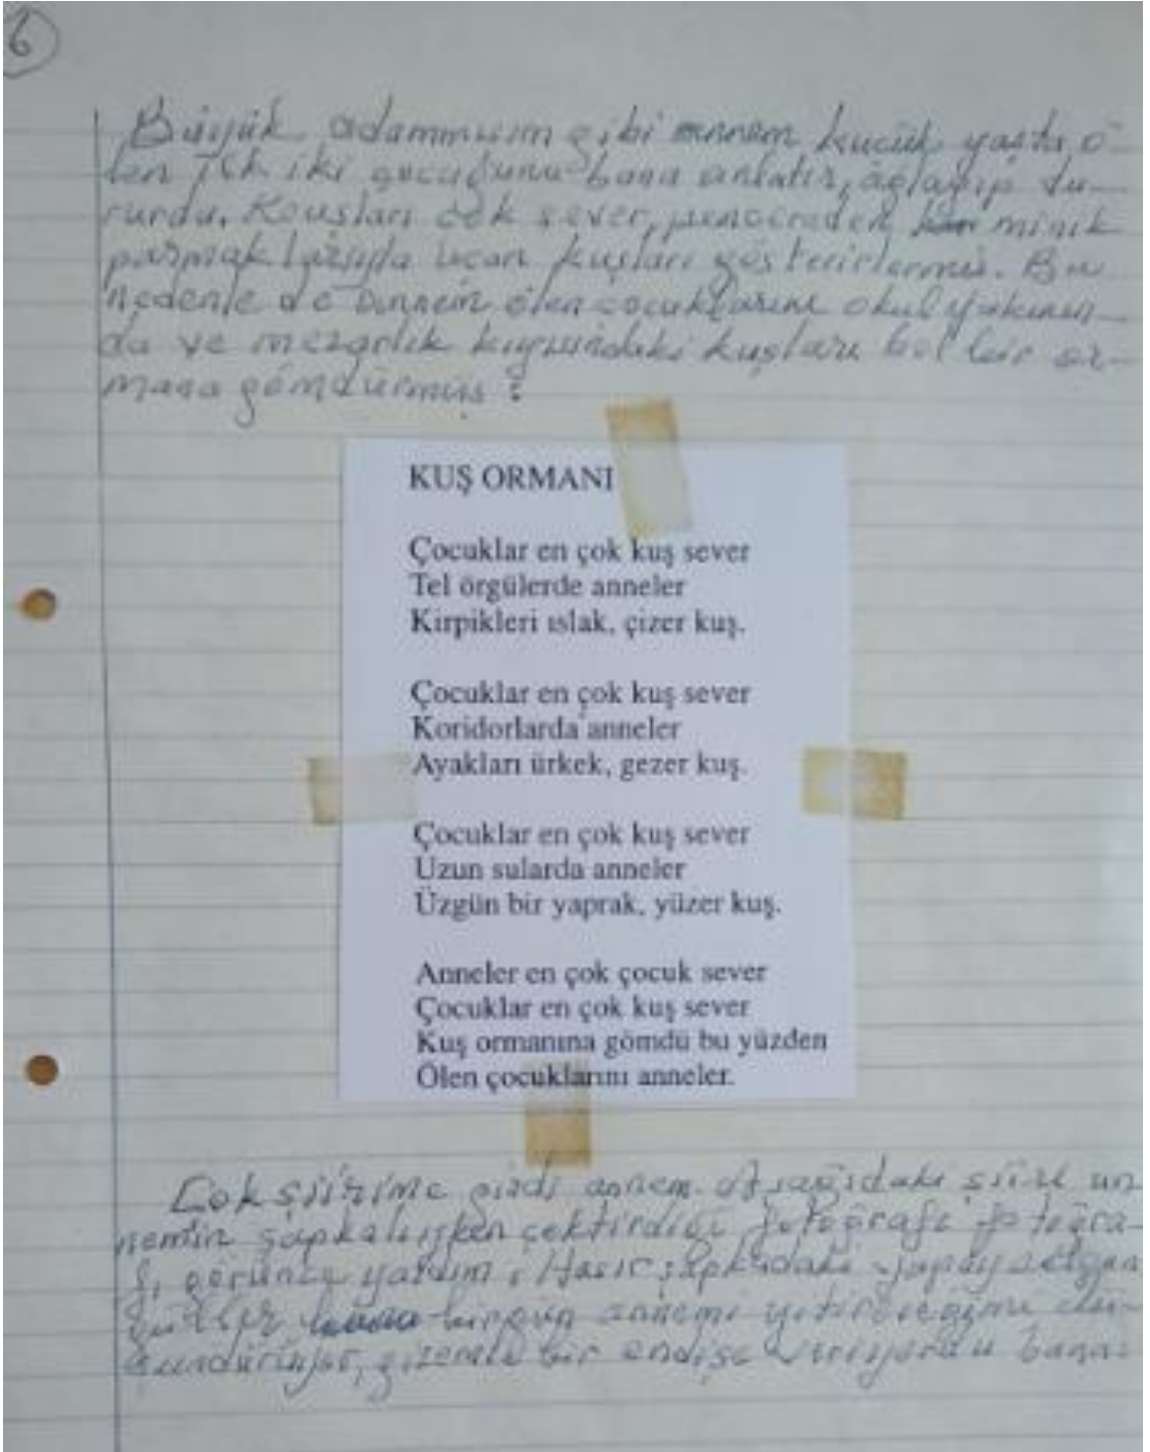 6
Büyük adammışım gibi annem küçük yaşta ö-
len ilk iki çocuğunu bana anlatır, ağlayıp du-
rurdu. Kuşları çok sever, pencereden minik
parmaklarıyla uçan kuşları gösterirlermiş. Bu
nedenle de annem ölen çocuklarını okul yakının-
da ve mezarlık kıyısındaki kuşları bol bir or-
mana gömdürmüş:
KUŞ ORMANI
Çocuklar en çok kuş sever
Tel örgülerde anneler
Kirpikleri ıslak, çizer kuş.
Çocuklar en çok kuş sever
Koridorlarda anneler
Ayakları ürkek, gezer kuş.
Çocuklar en çok kuş sever
Uzun sularda anneler
Üzgün bir yaprak, yüzer kuş.
Anneler en çok çocuk sever
Çocuklar en çok kuş sever
Kuş ormanına gömdü bu yüzden
Ölen çocuklarını anneler.
Çok şiirime girdi annem. Aşağıdaki şiiri an
nemin şapkalıyken çektirdiği fotoğrafı fotoğra-
fı görünce yazdım. Hasır şapkadaki yapay solgun
güller birgün annemi yitireceğimi dü-
şündürüyor, gizemli bir endişe veriyordu bana: